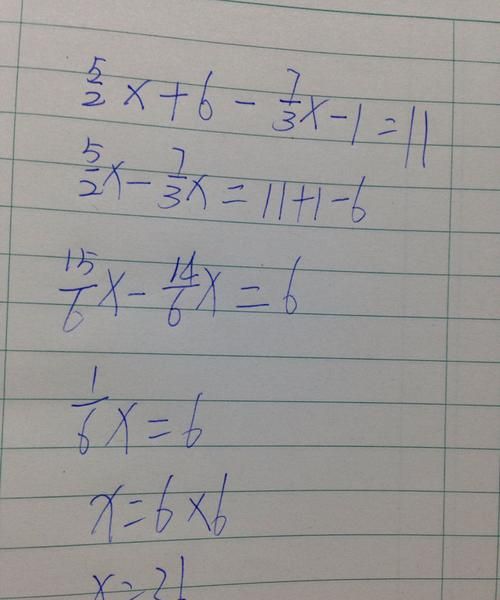 5/2 x + 6 - 7/3 x - 1 = 11
5/2 x - 7/3 x = 11 + 1 - 6
15/6 x - 14/6 x = 6
1/6 x = 6
x = 6 × 6
x = 36